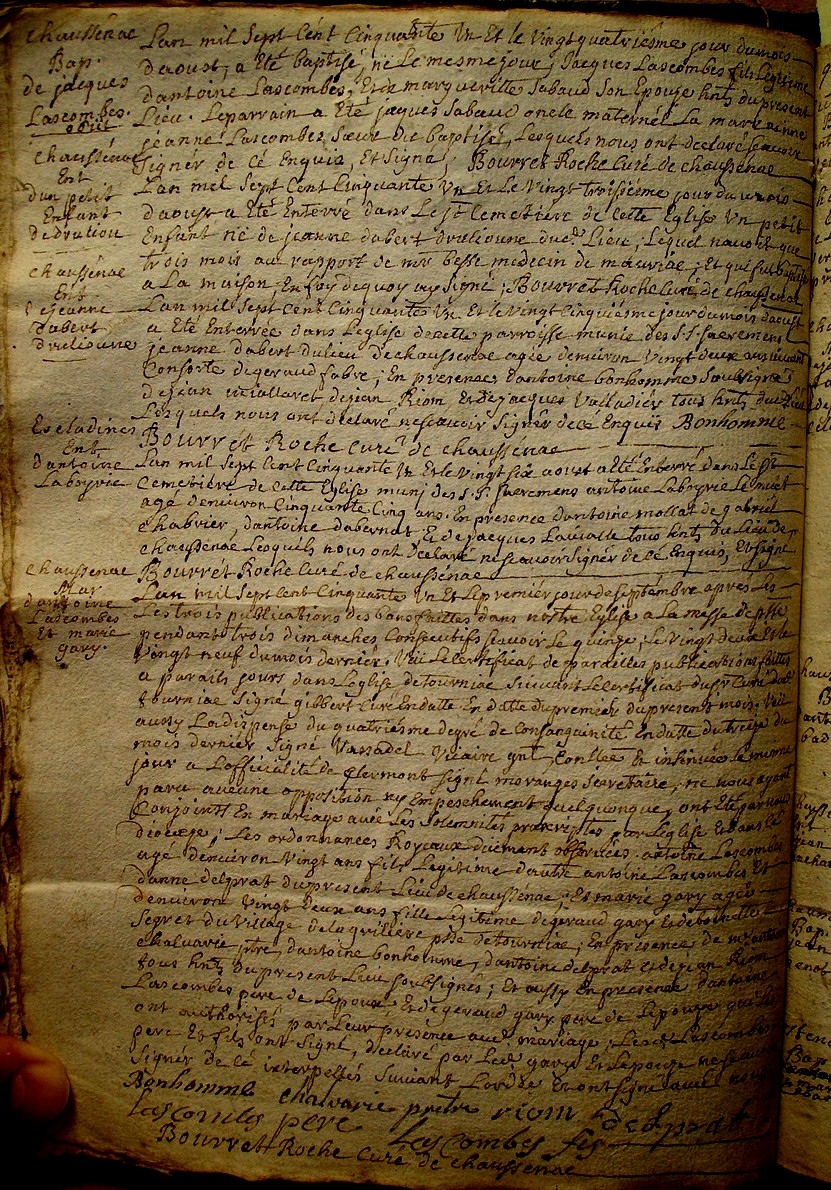 chaussénac
Bap.
de jacques
Lascombes.
Lan mil Sept Cent Cinquante Un Et le Vingt quatriésme jour du mois
daoust, a Eté baptisé, né Le mesme jour, Jacques Lascombes fils Légitime
dantoine Lascombes, Et de marguerittes Sabaud Son Epouse hnts du present
Lieu. Le parrain a Eté jaques Sabaud oncle maternel La marrainne
jeanne Lascombes Sœur du baptisé, Lesquels nous ont déclaré scavoir
Signer de Cé Enquis, Et Signé, Bourret Roche Curé de chaussenac
chaussénac
Ent
dun petit
Enfant
de druliou
Lan mil Sept Cent Cinquante Un Et Le Vingt troisiésme jour du mois
daoust a Eté Enterré dans Le st Cemetiére de Cette Eglise Un petit
Enfant né de jeanne dabert drulioune dud. Lieu, Lequel navoit que
trois mois au rapport de mr besse medecin de mauriac, Et qui fut baptisé
a La maison, En foy de quoy ay Signé, Bourret Roche Curé de chaussenac
chaussénac
Ent
d jeanne
Dabert
druliounne
Lan mil Sept Cent Cinquante Un Et le Vingt Cinquiésme jour du mois daoust
a Eté Enterrée dans Léglise de cette parroisse munie des S.S. Sacremens
jeanne dabert du lieu de chaussenac agée denviron Vingt deux ans vivant
Consorte de geraud fabre; En presence dantoine bonhomme Soussigné
de jean de jean Riom Et de jacques Valladiér tous hnts dud Lieu
Lesquels nous ont déclaré ne scavoir Signér de Cé Enquis Bonhomme
Bourret Roche Curé de chaussénac
Escladines
Ent
dantoine
Laboyrie
Lan mil Sept Cent Cinquante Un Et le Vingt Six aoust a Eté Enterré dans Le st
Cemetiére de Cette Eglise muni des S.S. Sacremens antoine Laboyrie Le muet
agé denviron Cinquante Cinq ans. En presence dantoine mollat de gabriel
chabrier, dantoine dabernat Et de jacques Lavialle tous hnts du Lieu de
chaussénac Lesquels nous ont déclaré ne scavoir Signér de Cé Enquis, Et Signé
Bourret Roche Curé de chaussénac
chaussenac
Mar
dantoine
Lascombes
Et marie
gary.
Lan mil Sept Cent Cinquante Un Et Le premier jour de septémbre apres Les
Les trois publications des bans faittes dans nostre Eglise a La messe de psse
pendant trois dimanches Consecutifs scavoir Le quinze, le Vingt deux Et le
Vingt neuf du mois dernier, Vu Le Certificat de pareilles publications faittes
a pareils jours dans Léglise de tourniac Suivant Le Certificat du sr Curé dud
tourniac Signé gilbert Curé En datte En datte du premier du present mois, Vu
aussy La dispense du quatriésme degré de Consanguinité En datte du treize du
mois dernier Signé Vassadel Vicaire gnl, Contlée Et insinuée Le mesme
jour a Lofficialité de Clermont Signé moranges Secretaire, ne nous ayant
paru aucune opposition ny Empeschement quelquonque, ont Eté par nous
Conjoints En mariage avec Les Solemnités prescriptes par Léglise Et dans Le
diocese; Les ordonnances Royaux duement observées. antoine Lascombes
agé denviron Vingt ans fils Légitime dautre antoine Lascombes Et
danne delprat du present Lieu de chaussénac; Et marie gary agée
denviron Vingt deux ans fille Légitime de geraud gary Et de
Segret du Village de la grilliere psse de tourniac; En présence de mr antoine
chalvarie ptre, dantoine bonhomme, dantoine delprat et de jean Riom
tous hnts du present Lieu soussignés; Et aussy En presence dantoine
Lascombes pere de Lepoux, Et de geraud gary pere de Lepouze qui
ont authorisés par Leur présence aud. mariage, Lesd Lascombes
pere Et fils ont Signé, déclaré par Led gary Et Lepouze ne scavoir
Signer de Cé interpellés Suivant Lordre Et ont Signé avec nous
Bonhomme chalvarie prêtre riom delprat
Lascombes pere Lascombes fils
Bourret Roche Curé de chaussénac